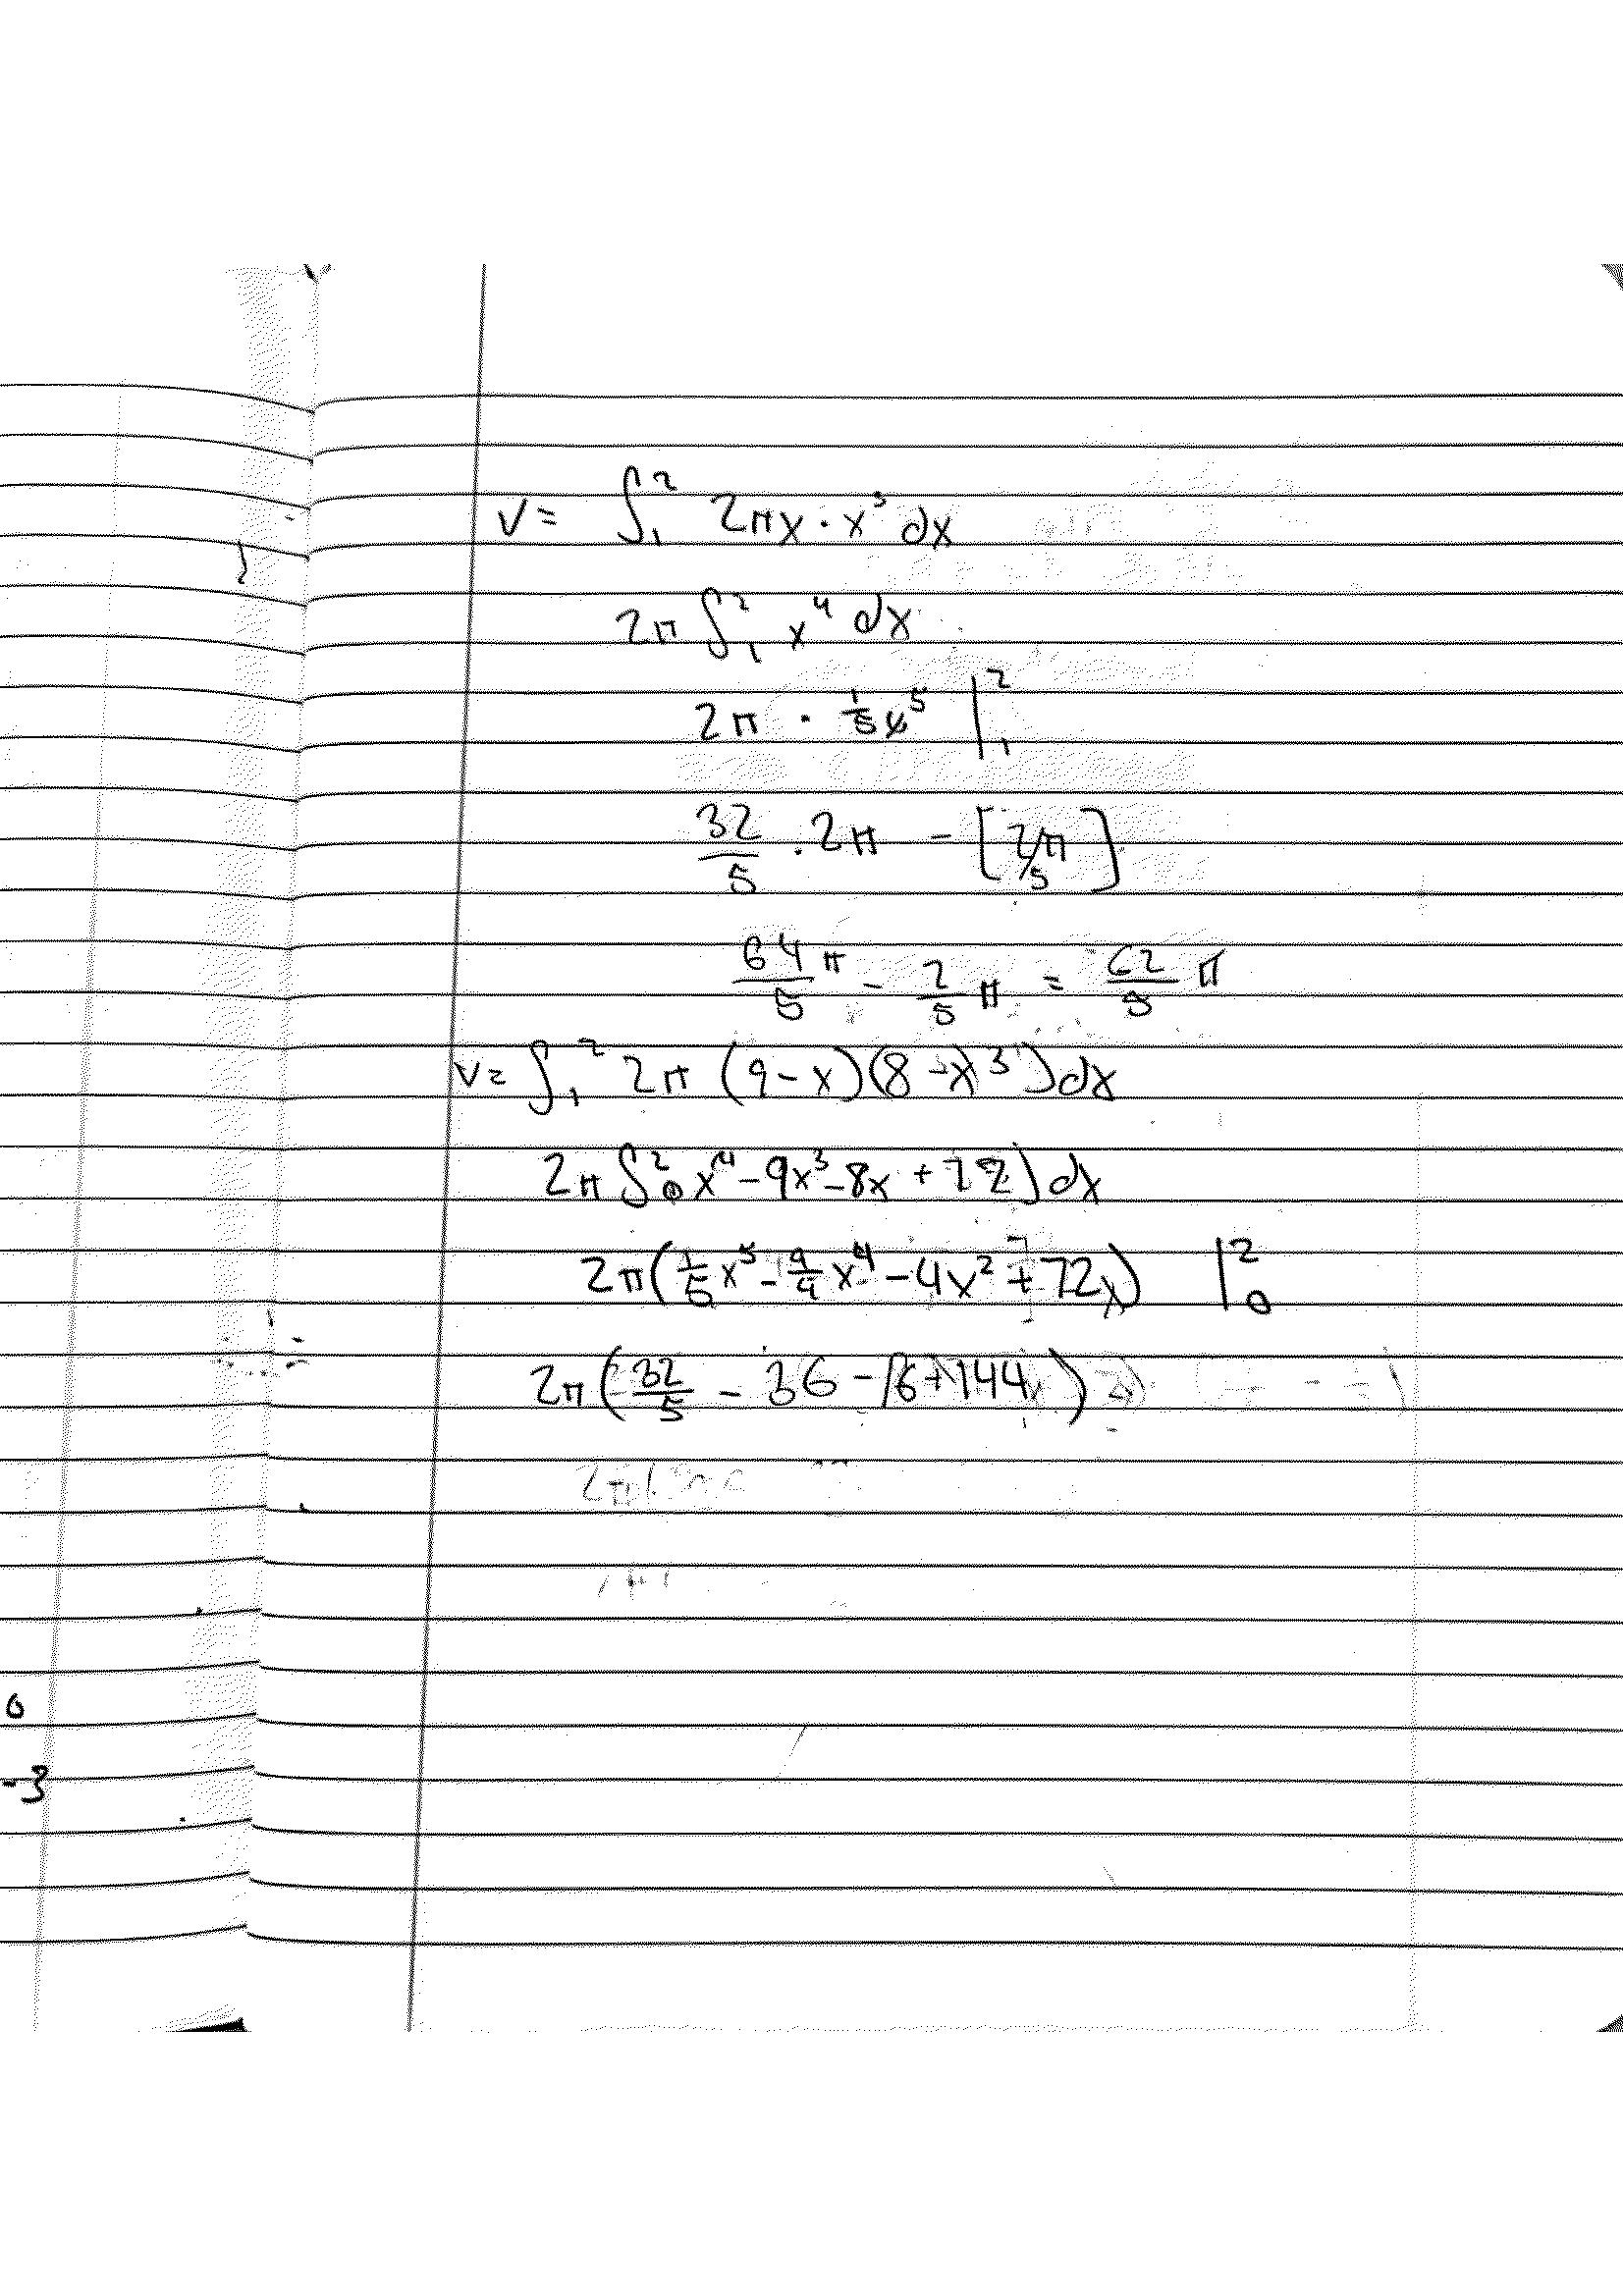 V = ∫₁² 2πx · x³ dx
2π ∫₁² x⁴ dx
2π · 1/5 x⁵ |₁²
32/5 · 2π - [2π/5]
64/5 π - 2/5 π = 62/5 π
V = ∫₁² 2π (9 - x)(8 - x³) dx
2π ∫₀² x⁴ - 9x³ - 8x + 72) dx
2π(1/5 x⁵ - 9/4 x⁴ - 4x² + 72x) |₀²
2π(32/5 - 36 - 16 + 144)
0
-3